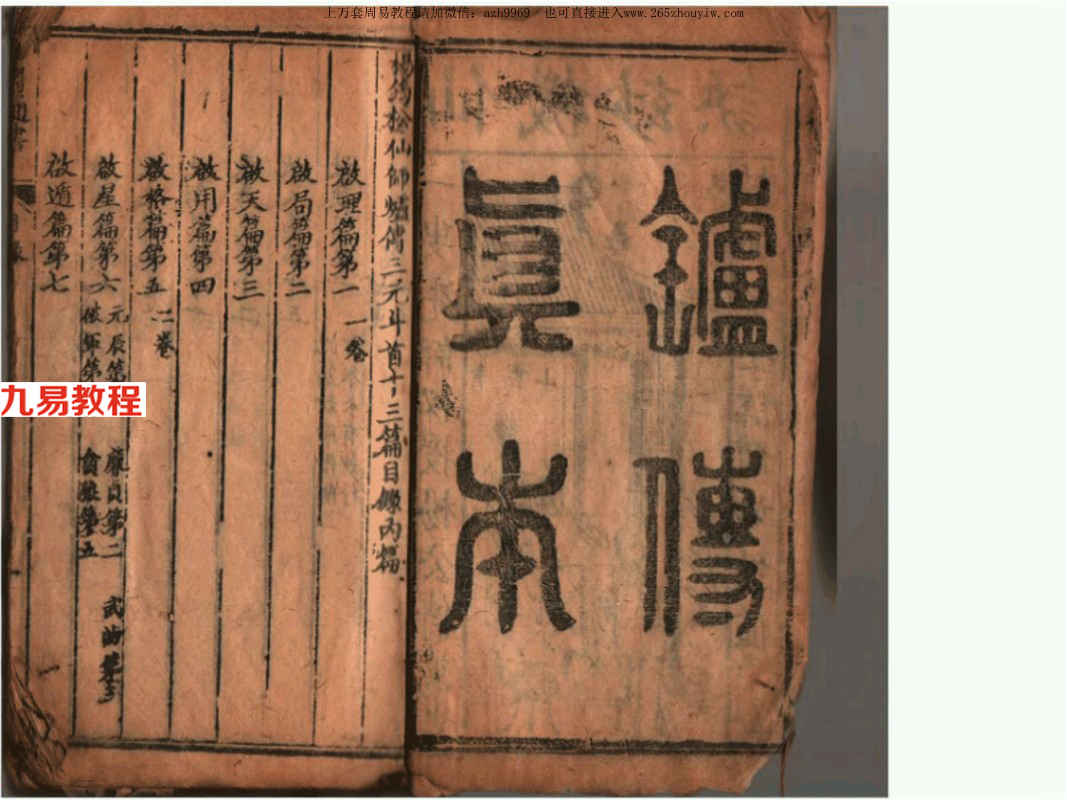 上万套周易教程请加微信：azh9969 也可直接进入www.265zhouyiw.com
鑪傳
眞本
楊筠松仙師爐傳三元斗首十三篇目錄內篇
啟理篇第一 一卷
啟局篇第二
啟天篇第三
啟用篇第四
啟格篇第五 二卷
啟星篇第六 元辰第一 廉貞第二 武曲第三
貪狼第五
啟遁篇第七
九易教程